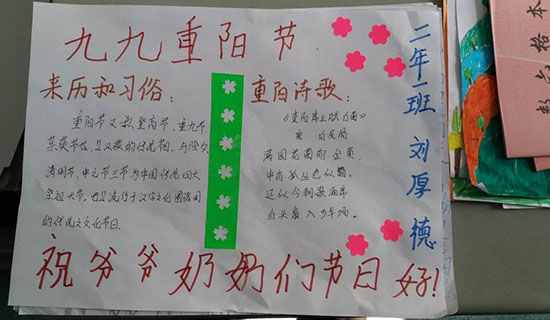 九九重阳节
来历和习俗：
重阳节又称登高节、重九节、
茱萸节 是汉族的传统节日。与除夕、
清明节、中元节三节为中国传统四大
祭祖大节。也是流行于汉字文化圈诸国
的传统文化节日。
重阳诗歌：
《重阳席上赋白菊》
唐 白居易
满园花菊郁金黄，
中有孤丛色似霜。
还似今朝歌酒席
白头翁入少年场。
二年一班 刘厚德
祝爷爷奶奶们节日好！
格本